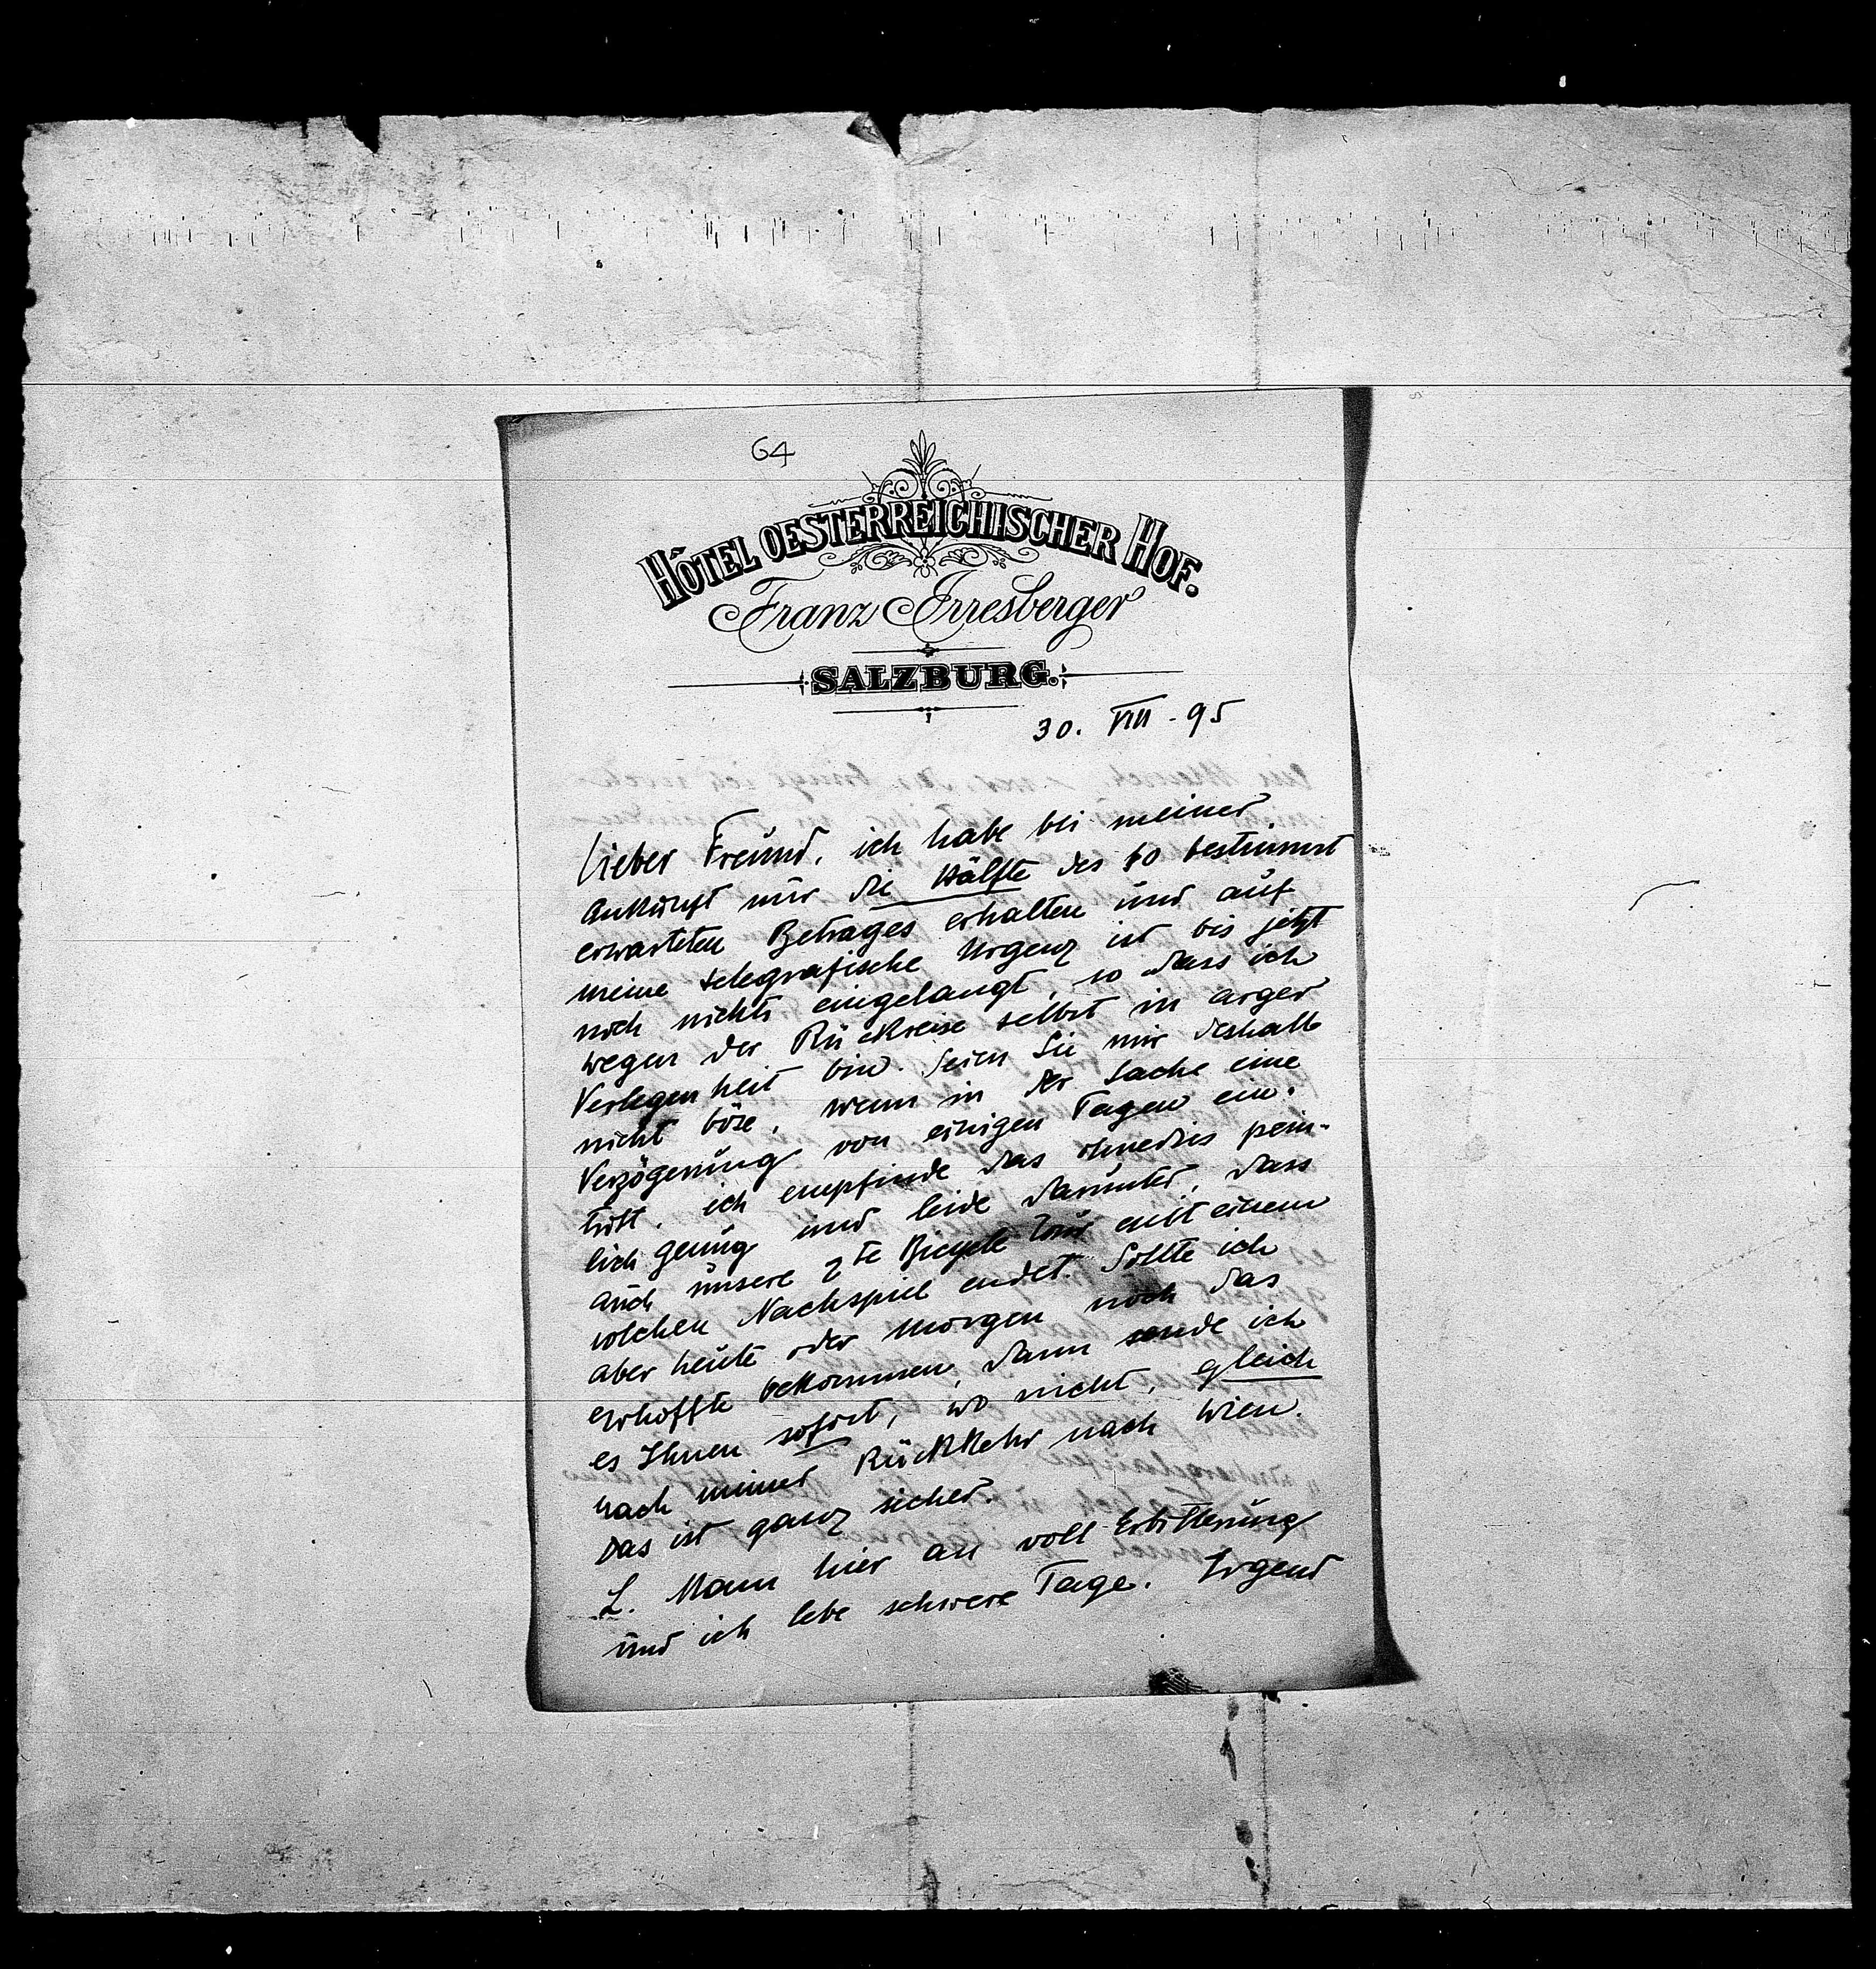 64
HÔTEL OESTERREICHISCHER HOF.
Franz Irresberger
SALZBURG.
30. VIII - 95
Lieber Freund, ich habe bei meiner
Ankunft nur die Hälfte des so bestimmt
erwarteten Betrages erhalten und auf
meine telegrafische Urgenz ist bis jetzt
noch nichts eingelangt, so dass ich
wegen der Rückreise selbst in arger
Verlegenheit bin. Seien Sie mir deshalb
nicht böse, wenn in der Sache eine
Verzögerung von einigen Tagen ein-
tritt. ich empfinde das ohnedies pein-
lich genug und leide darunter, dass
auch unsere 2te Bicycle Tour mit einem
solchen Nachspiel endet. Sollte ich
aber heute oder morgen noch das
erhoffte bekommen, dann sende ich
es Ihnen sofort, wo nicht, gleich
nach meiner Rückkehr nach Wien.
Das ist ganz sicher.
L. Mann hier an voll Erbitterung
und ich lebe schwere Tage. Irgend